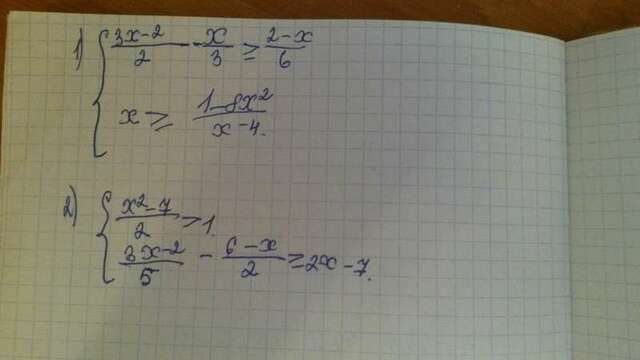 1) { (3x-2)/2 - x/3 ≥ (2-x)/6
x ≥ (1-8x²)/(x-4).
2) { (x²-7)/2 > 1.
(3x-2)/5 - (6-x)/2 ≥ 2x-7.